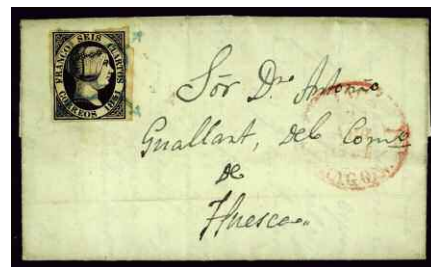 FRANCO SEIS CUARTOS
CORREOS 1851
Sōr Dn. Antonio
Guallart, del Come.
de
Huesca